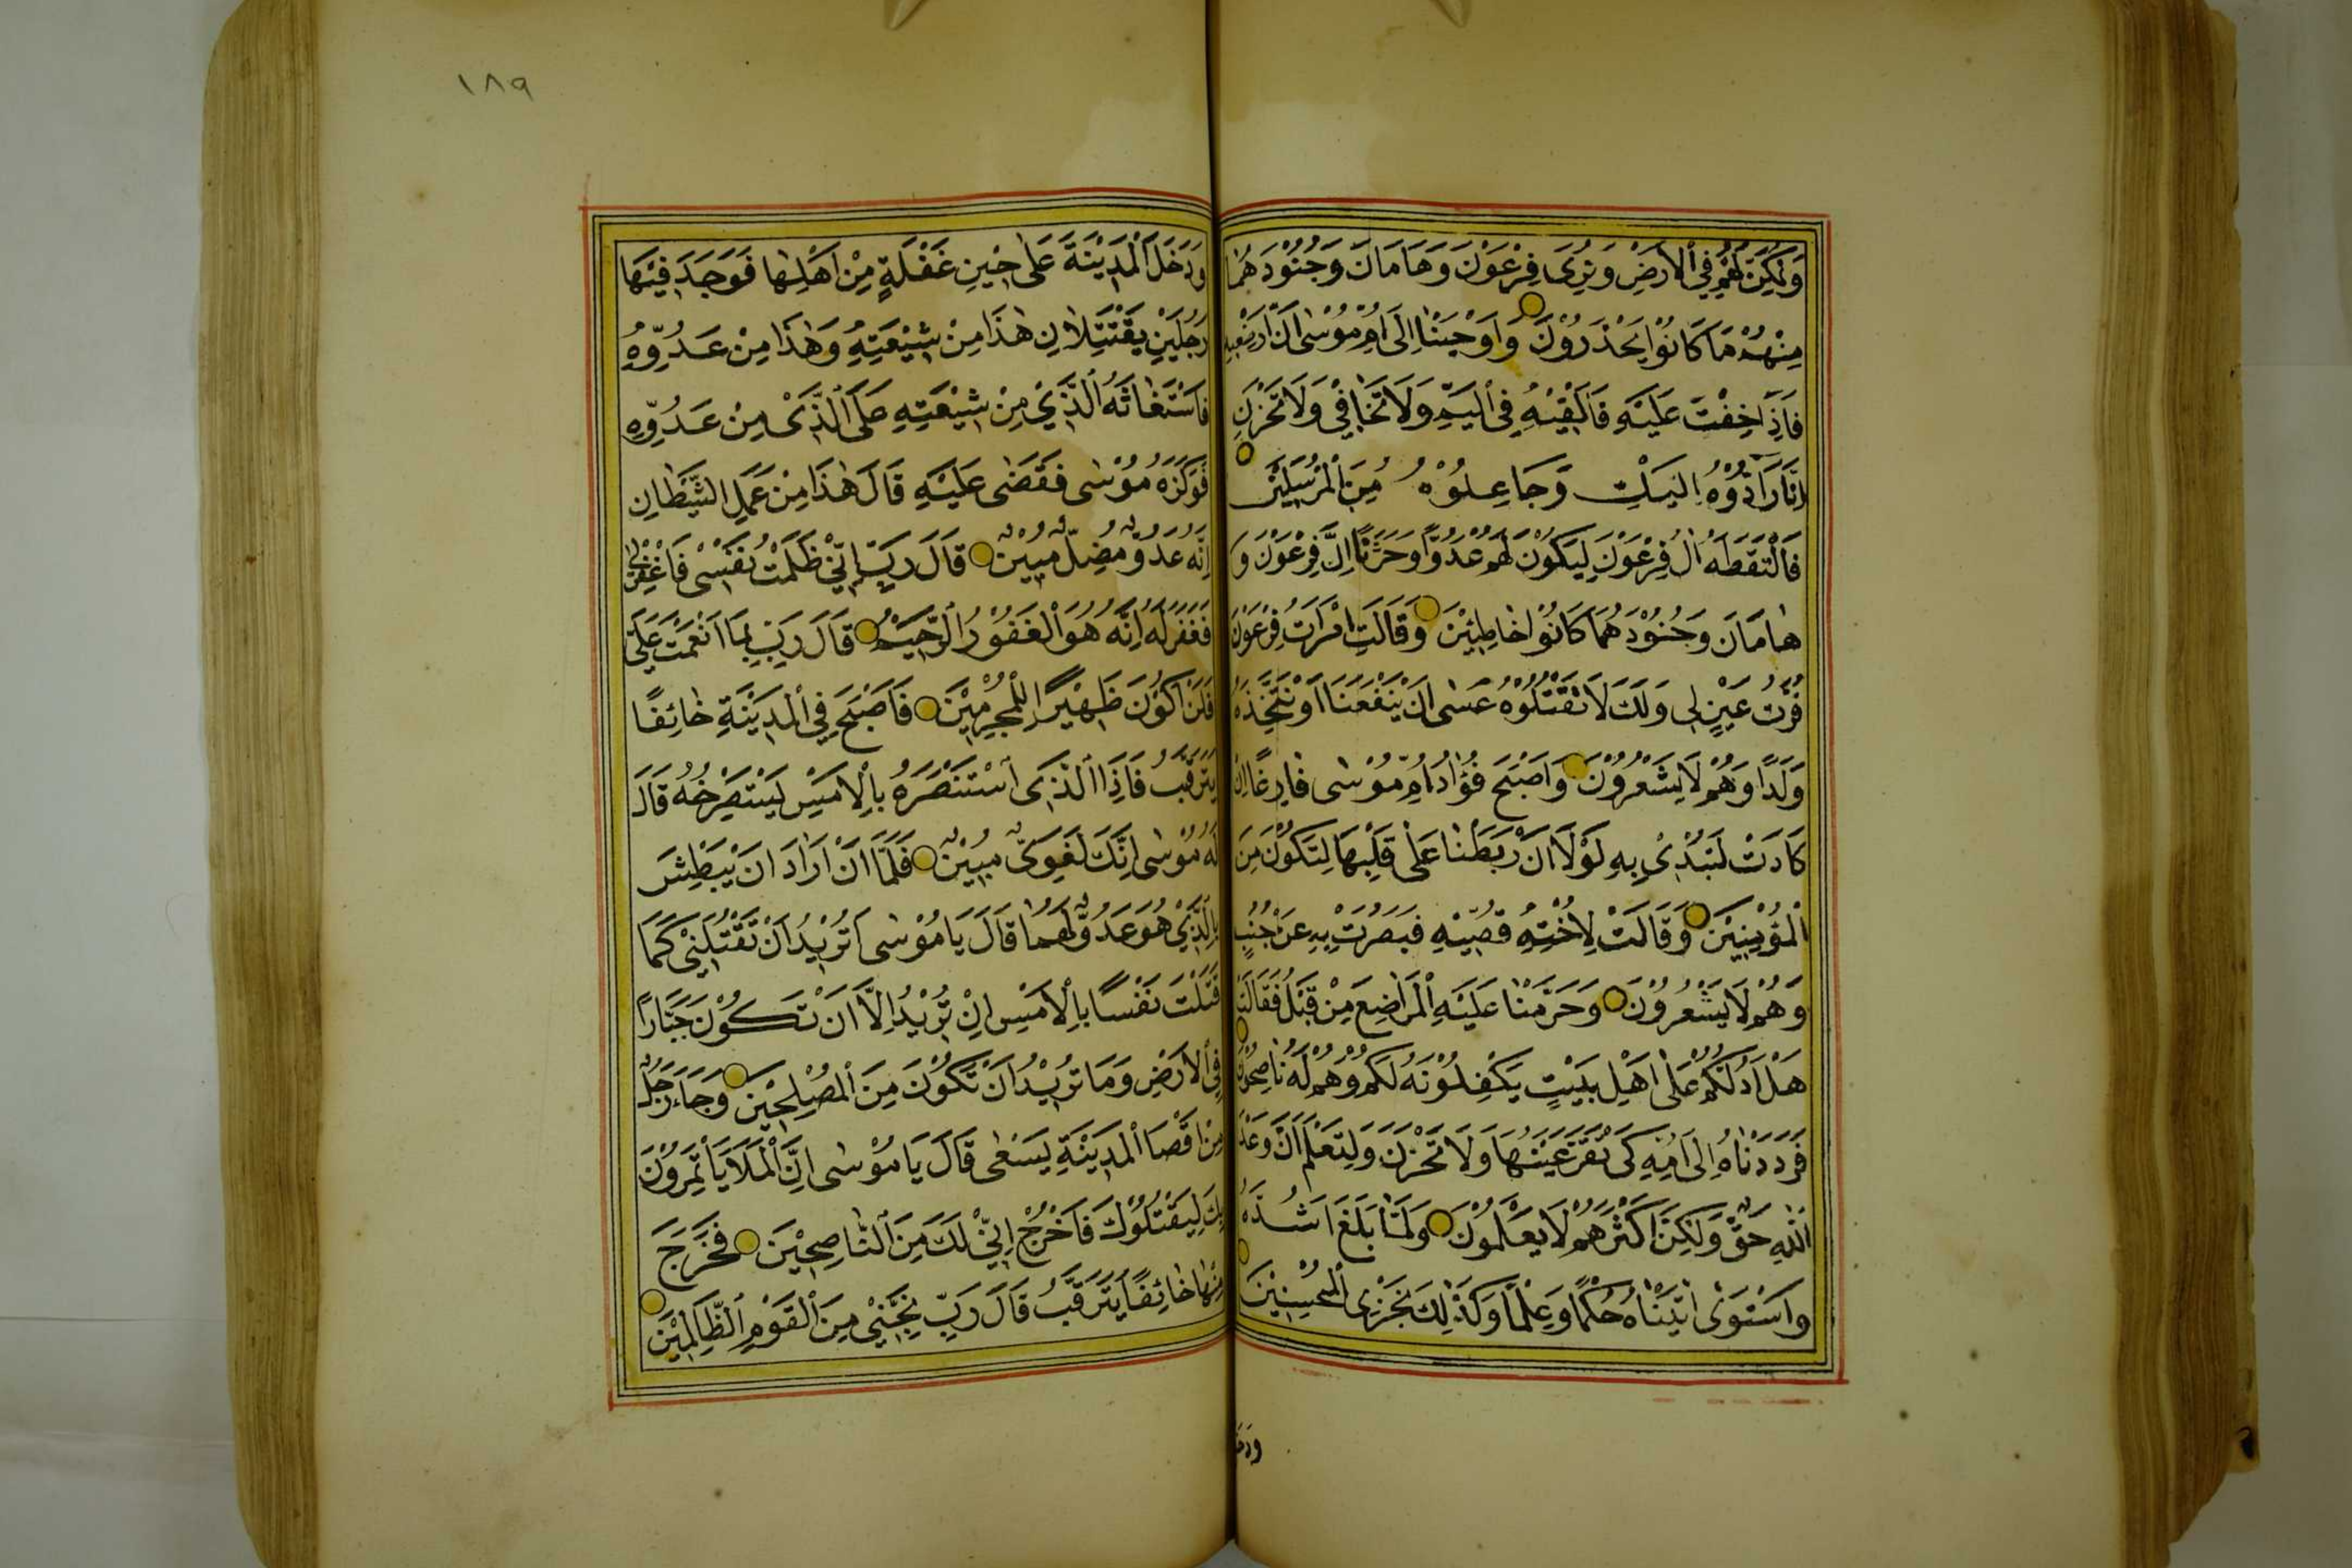 وَنُمَكِّنَ لَهُمْ فِي الْاَرْضِ وَنُرِىَ فِرْعَوْنَ وَهَامَانَ وَجُنُوْدَهُمَا
مِنْهُمْ مَا كَانُوْا يَحْذَرُوْنَ وَاَوْحَيْنَا اِلٰى اُمِّ مُوْسٰى اَنْ اَرْضِعِيْهِ
فَاِذَا خِفْتِ عَلَيْهِ فَاَلْقِيْهِ فِي الْيَمِّ وَلَا تَخَافِيْ وَلَا تَحْزَنِيْ
اِنَّا رَآدُّوْهُ اِلَيْكِ وَجَاعِلُوْهُ مِنَ الْمُرْسَلِيْنَ
فَالْتَقَطَهُ اٰلُ فِرْعَوْنَ لِيَكُوْنَ لَهُمْ عَدُوًّا وَحَزَنًا اِنَّ فِرْعَوْنَ وَ
هَامَانَ وَجُنُوْدَهُمَا كَانُوْا خَاطِئِيْنَ وَقَالَتِ امْرَاَتُ فِرْعَوْنَ
قُرَّتُ عَيْنٍ لِي وَلَكَ لَا تَقْتُلُوْهُ عَسٰى اَنْ يَنْفَعَنَا اَوْ نَتَّخِذَهُ
وَلَدًا وَهُمْ لَا يَشْعُرُوْنَ وَاَصْبَحَ فُؤَادُ اُمِّ مُوْسٰى فَارِغًا اِنْ
كَادَتْ لَتُبْدِيْ بِهِ لَوْلَا اَنْ رَبَطْنَا عَلٰى قَلْبِهَا لِتَكُوْنَ مِنَ
الْمُؤْمِنِيْنَ وَقَالَتْ لِاُخْتِهِ قُصِّيْهِ فَبَصُرَتْ بِهِ عَنْ جُنُبٍ
وَهُمْ لَا يَشْعُرُوْنَ وَحَرَّمْنَا عَلَيْهِ الْمَرَاضِعَ مِنْ قَبْلُ فَقَالَتْ
هَلْ اَدُلُّكُمْ عَلٰى اَهْلِ بَيْتٍ يَكْفُلُوْنَهُ لَكُمْ وَهُمْ لَهُ نَاصِحُوْنَ
فَرَدَدْنَاهُ اِلٰى اُمِّهِ كَىْ تَقَرَّ عَيْنُهَا وَلَا تَحْزَنَ وَلِتَعْلَمَ اَنَّ وَعْدَ
اللّٰهِ حَقٌّ وَلٰكِنَّ اَكْثَرَهُمْ لَا يَعْلَمُوْنَ وَلَمَّا بَلَغَ اَشُدَّهُ
وَاسْتَوٰى اٰتَيْنَاهُ حُكْمًا وَعِلْمًا وَكَذٰلِكَ نَجْزِى الْمُحْسِنِيْنَ
ودخل
١٨٩
وَدَخَلَ الْمَدِيْنَةَ عَلٰى حِيْنِ غَفْلَةٍ مِنْ اَهْلِهَا فَوَجَدَ فِيْهَا
رَجُلَيْنِ يَقْتَتِلَانِ هٰذَا مِنْ شِيْعَتِهِ وَهٰذَا مِنْ عَدُوِّهِ
فَاسْتَغَاثَهُ الَّذِيْ مِنْ شِيْعَتِهِ عَلَى الَّذِىْ مِنْ عَدُوِّهِ
فَوَكَزَهُ مُوْسٰى فَقَضٰى عَلَيْهِ قَالَ هٰذَا مِنْ عَمَلِ الشَّيْطَانِ
اِنَّهُ عَدُوٌّ مُضِلٌّ مُبِيْنٌ قَالَ رَبِّ اِنِّيْ ظَلَمْتُ نَفْسِيْ فَاغْفِرْ لِيْ
فَغَفَرَ لَهُ اِنَّهُ هُوَ الْغَفُوْرُ الرَّحِيْمُ قَالَ رَبِّ بِمَا اَنْعَمْتَ عَلَيَّ
فَلَنْ اَكُوْنَ ظَهِيْرًا لِلْمُجْرِمِيْنَ فَاَصْبَحَ فِي الْمَدِيْنَةِ خَائِفًا
يَتَرَقَّبُ فَاِذَا الَّذِى اسْتَنْصَرَهُ بِالْاَمْسِ يَسْتَصْرِخُهُ قَالَ
لَهُ مُوْسٰى اِنَّكَ لَغَوِىٌّ مُبِيْنٌ فَلَمَّا اَنْ اَرَادَ اَنْ يَبْطِشَ
بِالَّذِيْ هُوَ عَدُوٌّ لَهُمَا قَالَ يَا مُوْسٰى اَتُرِيْدُ اَنْ تَقْتُلَنِيْ كَمَا
قَتَلْتَ نَفْسًا بِالْاَمْسِ اِنْ تُرِيْدُ اِلَّا اَنْ تَكُوْنَ جَبَّارًا
فِي الْاَرْضِ وَمَا تُرِيْدُ اَنْ تَكُوْنَ مِنَ الْمُصْلِحِيْنَ وَجَاءَ رَجُلٌ
مِنْ اَقْصَا الْمَدِيْنَةِ يَسْعٰى قَالَ يَا مُوْسٰى اِنَّ الْمَلَاَ يَاْتَمِرُوْنَ
بِكَ لِيَقْتُلُوْكَ فَاخْرُجْ اِنِّيْ لَكَ مِنَ النَّاصِحِيْنَ فَخَرَجَ
مِنْهَا خَائِفًا يَتَرَقَّبُ قَالَ رَبِّ نَجِّنِيْ مِنَ الْقَوْمِ الظَّالِمِيْنَ